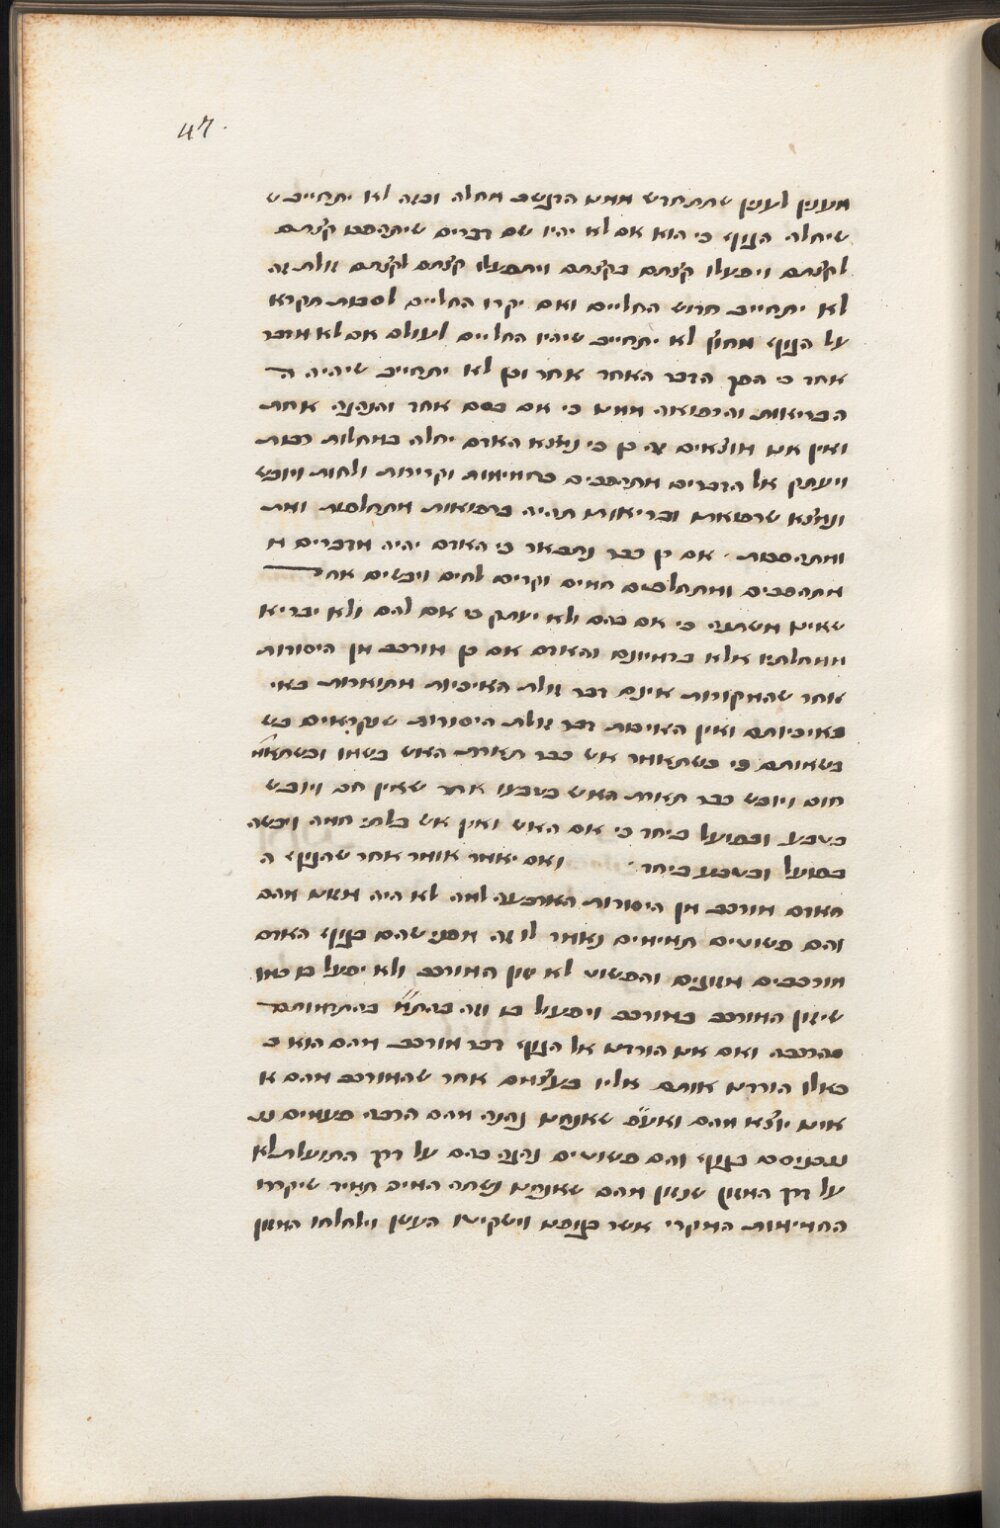 47.
מענין לענין שתתחדש ממנו הרגשת מחלה ובזה לא יתחייב ש
שיחלה הגוף כי הוא אם לא יהיו שם דברים שיתהפכו קצתם
לקצתם ויפעלו קצתם בקצתם ויתפעלו קצתם לקצתם זולת זה
לא יתחייב חדוש החליים ואם יקרו החליים לסבות תקרא
על הגוף מחוץ לא יתחייב שיהיו החליים לעולם אם לא מדבר
אחד כי הפך הדבר האחד אחד וכן לא יתחייב שיהיה ה
הבריאות והרפואה ממנו כי אם בסם אחד והנהגה אחת
ואין אנו מוצאים זה כן כי נמצא האדם יחלה במחלות רבות
ויעתק אל הדברים מתהפכים בחמימות וקרירות ולחות ויובש
ונמצא שרפואתו ובריאותו תהיה ברפואות מתחלפות ואת
ומתהפכות . אם כן כבר נתבאר כי האדם יהיה מדברים מ
מתהפכים ומתחלפים חמים וקרים לחים ויבשים אח
שאינו משתנה כי אם בהם ולא יעתק כי אם להם ולא יבריא
ממחלתיו אלא בדמיונם והאדם אם כן מורכב מן היסודות
אחר שהמקורות אינם דבר זולת האיכיות מתוארות באי
באיכיותם ואין האיכות דבר זולת היסודות שנקראים בש
בשמותם כי כשתאמר אש כבר תארת האש בשמו וכשתאמ'
חום ויובש כבר תארת האש בטבעו אחר שאין חם ויובש
בטבע ובפועל ביחד כי אם האש ואין אש בלתי חמה ויבשה
בפועל ובטבע ביחד . ואם יאמר אומר אחר שהגוף ה
האדם מורכב מן היסודות הארבעה למה לא היה מזונו מהם
והם פשוטים תמימים נאמר לו זה מפני שהם בגוף האדם
מורכבים מזוגים והפשוט לא יזון המורכב ולא יפעל בו כמו
שיזון המורכב במורכב ויפעול בו וזה בהת'מ' בהתדמותם
בהרכבה ואם אנו הורדנו אל הגוף דבר מורכב מהם הוא כ
כאלו הורדנו אותם אליו בעצמם אחר שהמורכב מהם א
אינו יוצא מהם ואע"פ שאנחנו נהנה מהם הרבה פעמים נכ
נכניסם בגוף והם פשוטים נהנה בהם על דרך התועלת לא
על דרך המזון שנזון מהם שאנחנו נשתה המים תמיד שיקררו
החמימות המקרי אשר בגופנו וישקיטו העשן וילחלחו המזון